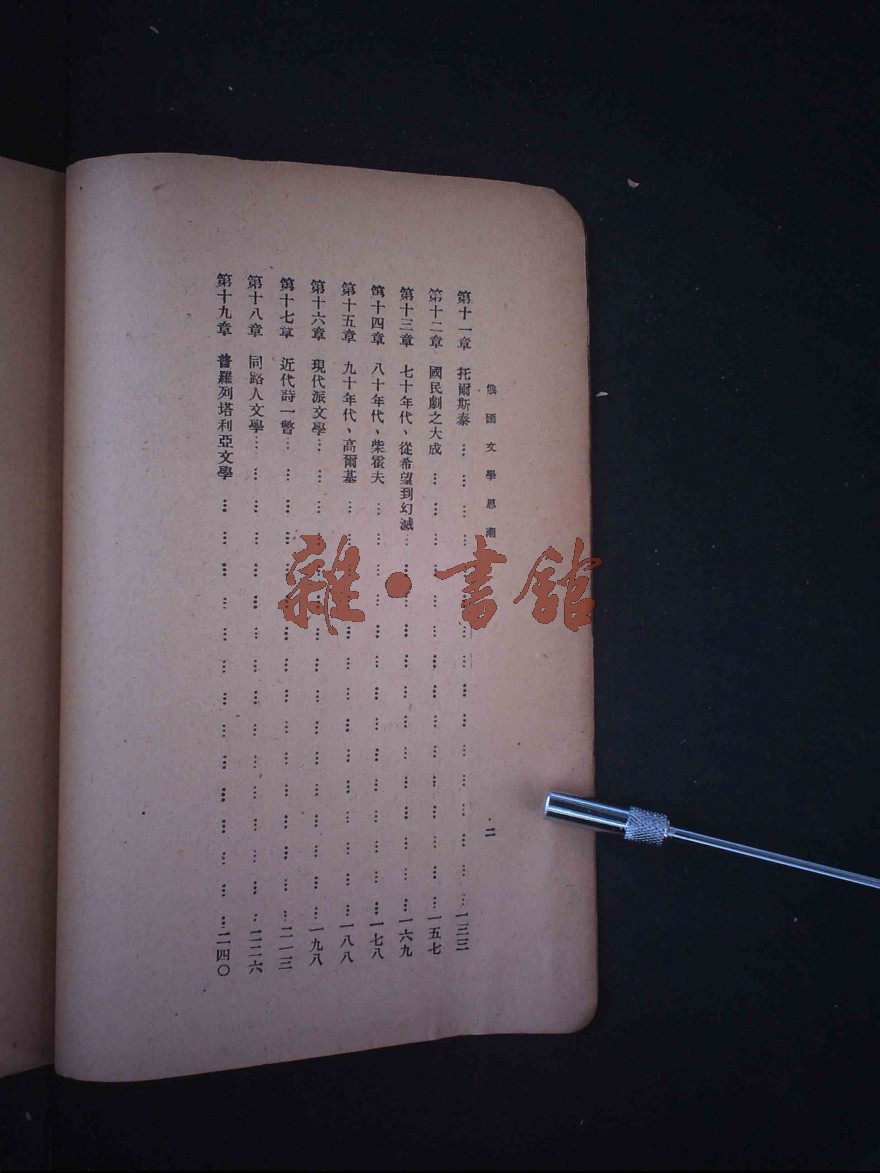 俄國文學思潮
二
第十一章 托爾斯泰 … … … … … … … … … … … … … 一三三
第十二章 國民劇之大成 … … … … … … … … … … … … 一五七
第十三章 七十年代、從希望到幻滅 … … … … … … … … … … 一六九
第十四章 八十年代、柴霍夫 … … … … … … … … … … … 一七八
第十五章 九十年代、高爾基 … … … … … … … … … … … 一八八
第十六章 現代派文學 … … … … … … … … … … … … 一九八
第十七章 近代詩一瞥 … … … … … … … … … … … … 二一三
第十八章 同路人文學 … … … … … … … … … … … … 二二六
第十九章 普羅列塔利亞文學 … … … … … … … … … … … 二四〇
雜·書館